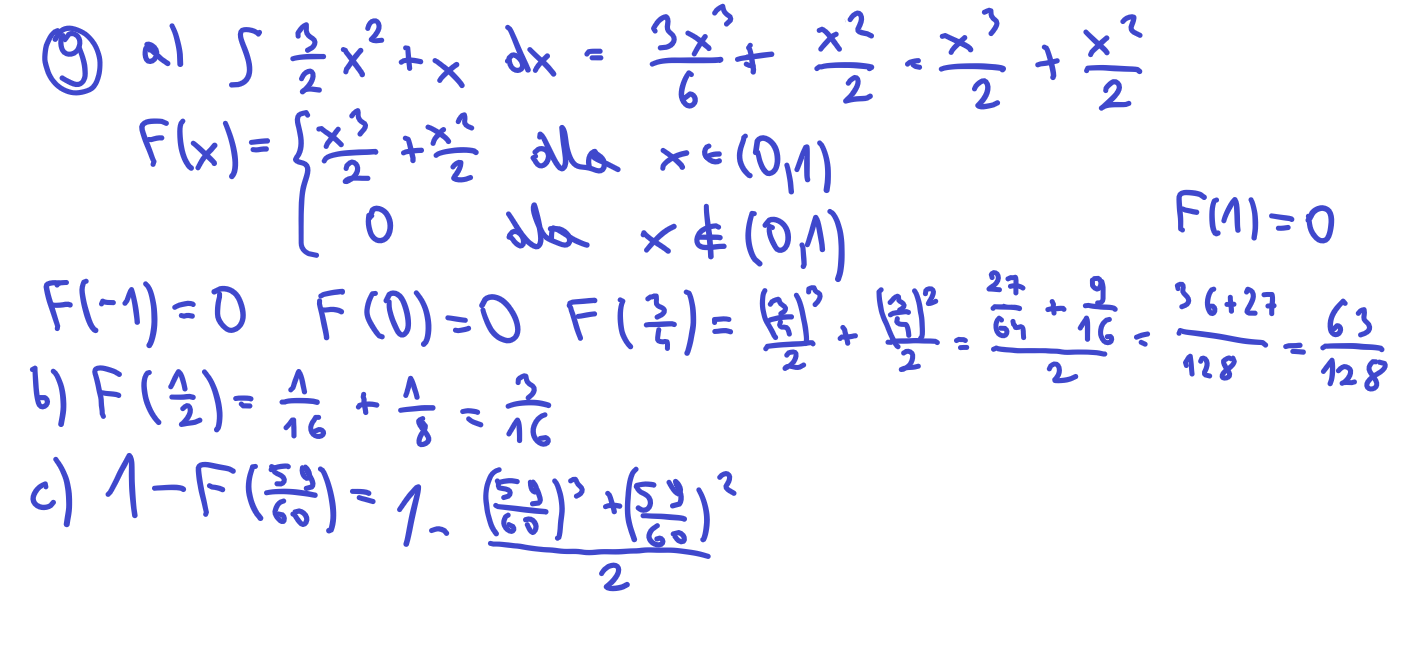 ⑨ a) ∫ 3/2 x² + x dx = 3x³/6 + x²/2 = x³/2 + x²/2
F(x) = { x³/2 + x²/2 dla x ∈ (0,1)
0 dla x ∉ (0,1) F(1) = 0
F(-1) = 0 F(0) = 0 F(3/4) = (3/4)³/2 + (3/4)²/2 = (27/64 + 9/16)/2 = (36+27)/128 = 63/128
b) F(1/2) = 1/16 + 1/8 = 3/16
c) 1 - F(59/60) = 1 - ((59/60)³ + (59/60)²)/2